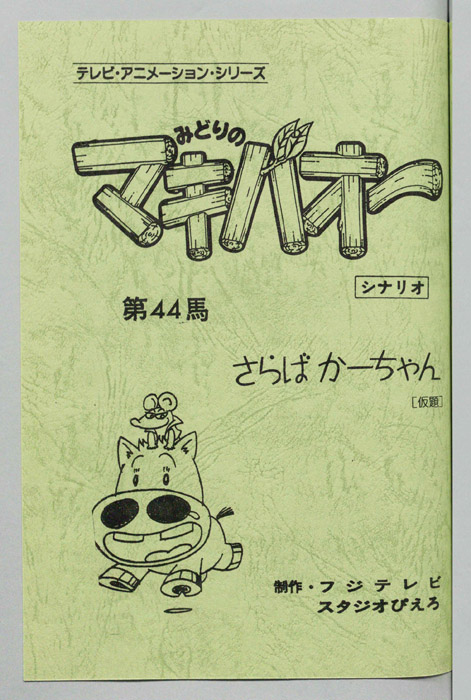 テレビ・アニメーション・シリーズ
みどりの
マキバオー
シナリオ
第44馬
さらば かーちゃん
[仮題]
制作・フジテレビ
スタジオぴえろ